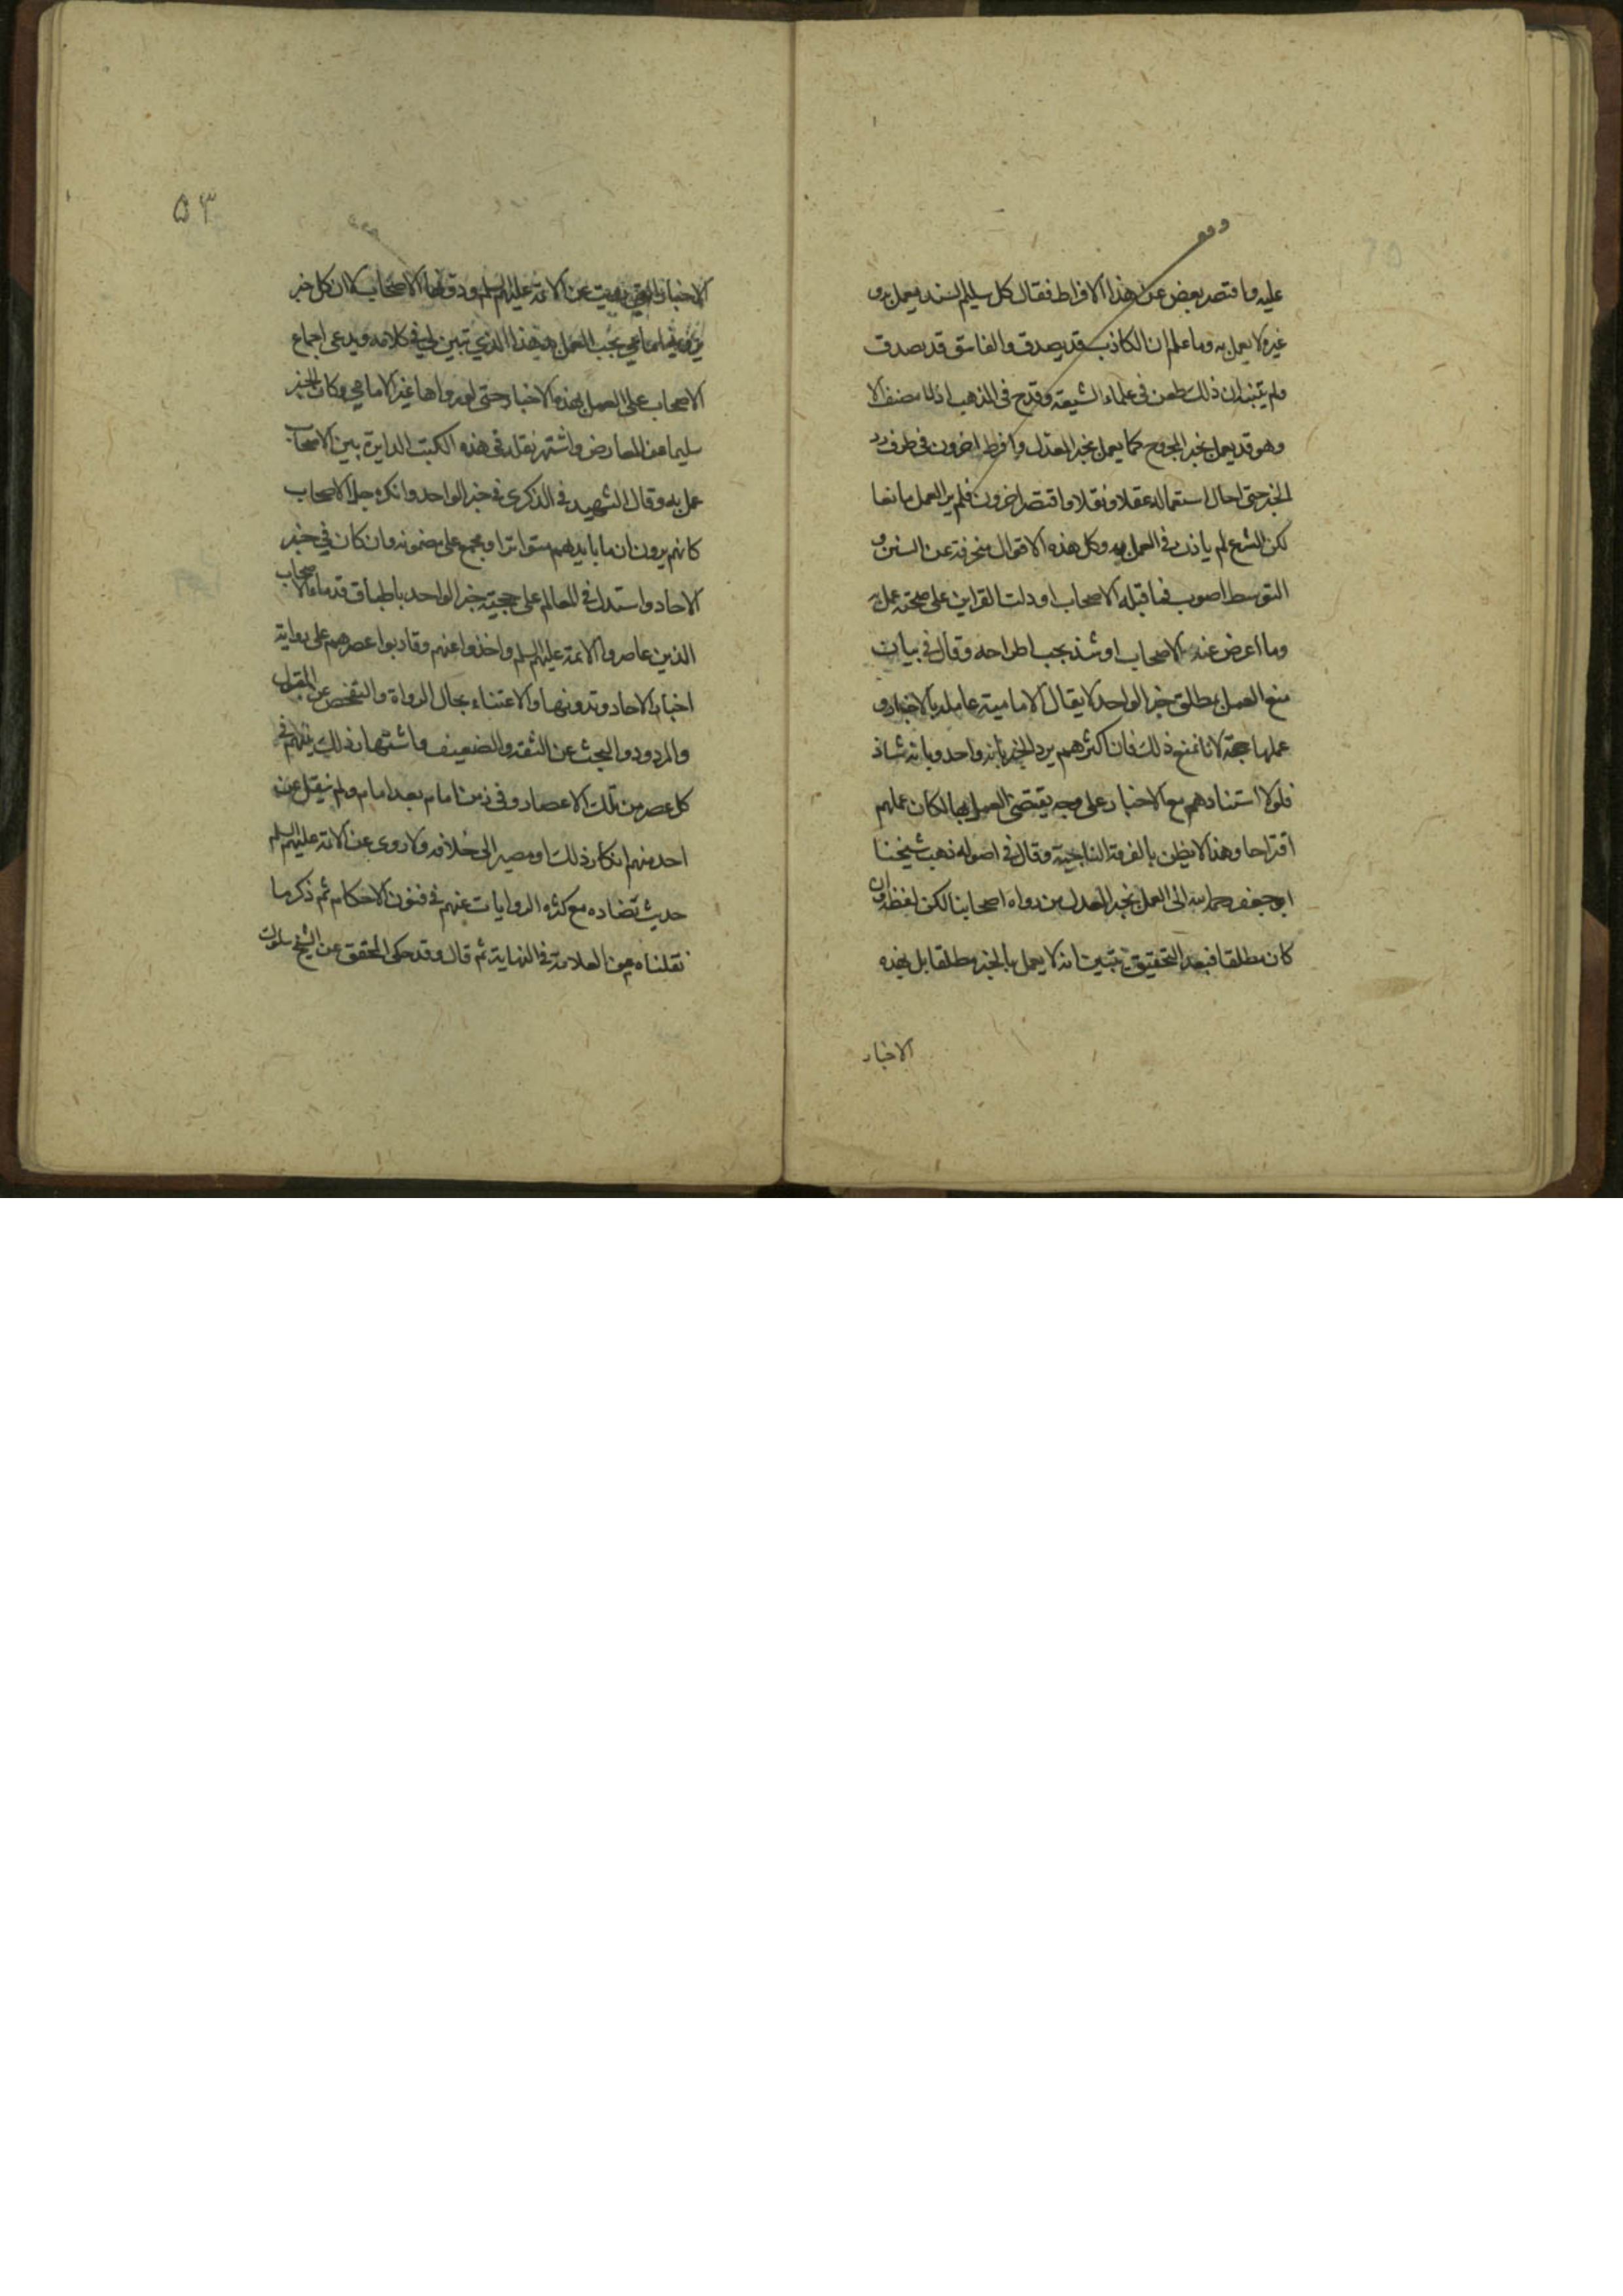 وقف
عليه واقتصر بعض عن هذا الافراط فقال كل سليم السند يعمل به و
غيره لا يعمل به وما علم ان الكاذب قد يصدق والفاسق قد يصدق
ولم يتنبه ان ذلك طعن في علماء الشيعة وقدح في المذهب اذ لا مصنف الا
وهو قد يعمل بخبر المجروح كما يعمل بخبر المعدل وافرط اخرون في طرف رد
الخبر حتى احال استعماله عقلا ونقلا واقتصر اخرون فلم ير العمل مانعا
لكن الشرع لم ياذن في العمل به وكل هذه الاقوال منحرفة عن السنن و
التوسط اصوب فما قبله الاصحاب او دلت القراين على صحته عمل به
وما اعرض عنه الاصحاب او شذ يجب اطراحه وقال في بيان
منع العمل بمطلق خبر الواحد لا يقال الامامية عاملة بالاخبار و
عملها حجة لانا نمنع ذلك فان اكثرهم يرد الخبر بانه واحد وبانه شاذ
فلولا استنادهم مع الاخبار على وجه يقتضي العمل بها لكان عملهم
اقتراحا وهذا لا يظن بالفرقة الناجية وقال في اصوله ذهب شيخنا
ابو جعفر رحمه الله الى العمل بخبر العدل من رواة اصحابنا لكن لفظه وان
كان مطلقا فبعد التحقيق يتبين انه لا يعمل بالخبر مطلقا بل بهذه
الاخبار
٥٣
الاخبار التي رويت عن الائمة عليهم السلم ودونها الاصحاب لا ان كل خبر
يرويه امامي يجب العمل به هذا الذي تبين لي في كلامه ويدعى اجماع
الاصحاب على العمل بهذه الاخبار حتى لو رواها غير الامامي وكان الخبر
سليما عن المعارض واشتهر نقله في هذه الكتب الدايرة بين الاصحاب
عمل به وقال الشهيد في الذكرى في خبر الواحد وانكره جل الاصحاب
كانهم يرون ان ما بايديهم متواترا او مجمع على مضمونه وان كان في خبر
الاحاد واستدل في المعالم على حجية خبر الواحد باطباق قدماء الاصحاب
الذين عاصروا الائمة عليهم السلم واخذوا عنهم وقاربوا عصرهم على رواية
اخبار الاحاد وتدوينها والاعتناء بحال الرواة والتفحص عن المقبول
والمردود والبحث عن الثقة والضعيف واشتهار ذلك بينهم في
كل عصر من تلك الاعصار وفي زمن امام بعد امام ولم ينقل عن
احد منهم انكار ذلك او مصير الى خلافه ولا روى عن الائمة عليهم السلم
حديث تضاده مع كثرة الروايات عنهم في فنون الاحكام ثم ذكر ما
نقلناه عن العلامة في النهاية ثم قال وقد حكى المحقق عن الشيخ سلوك